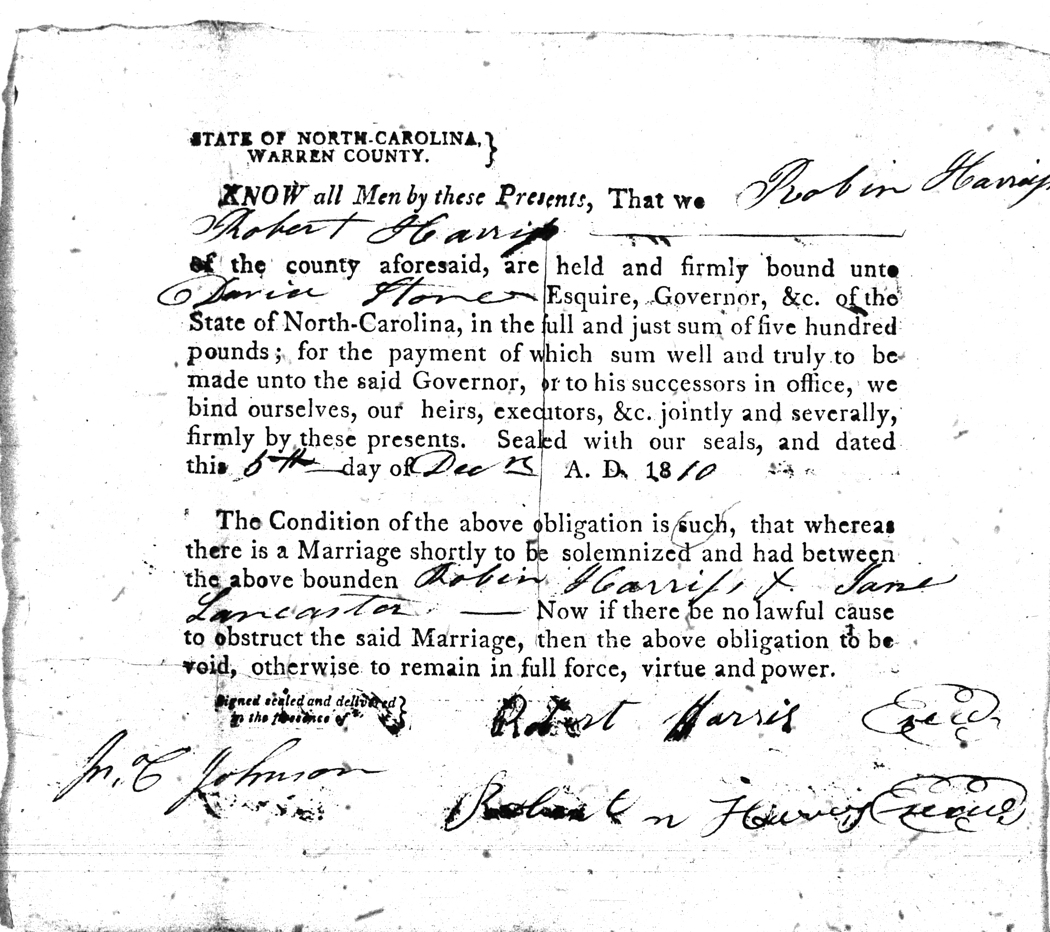 STATE OF NORTH-CAROLINA, }
WARREN COUNTY.
KNOW all Men by these Presents, That we Robin Harriss
Robert Harriss
of the county aforesaid, are held and firmly bound unto
David Stone Esquire, Governor, &c. of the
State of North-Carolina, in the full and just sum of five hundred
pounds; for the payment of which sum well and truly to be
made unto the said Governor, or to his successors in office, we
bind ourselves, our heirs, executors, &c. jointly and severally,
firmly by these presents. Sealed with our seals, and dated
this 6th day of Decr A. D. 1810
The Condition of the above obligation is such, that whereas
there is a Marriage shortly to be solemnized and had between
the above bounden Robin Harriss & Jane
Lancaster — Now if there be no lawful cause
to obstruct the said Marriage, then the above obligation to be
void, otherwise to remain in full force, virtue and power.
Signed sealed and delivered }
in the presence of
Robert Harris
Jn. C Johnson
Harris